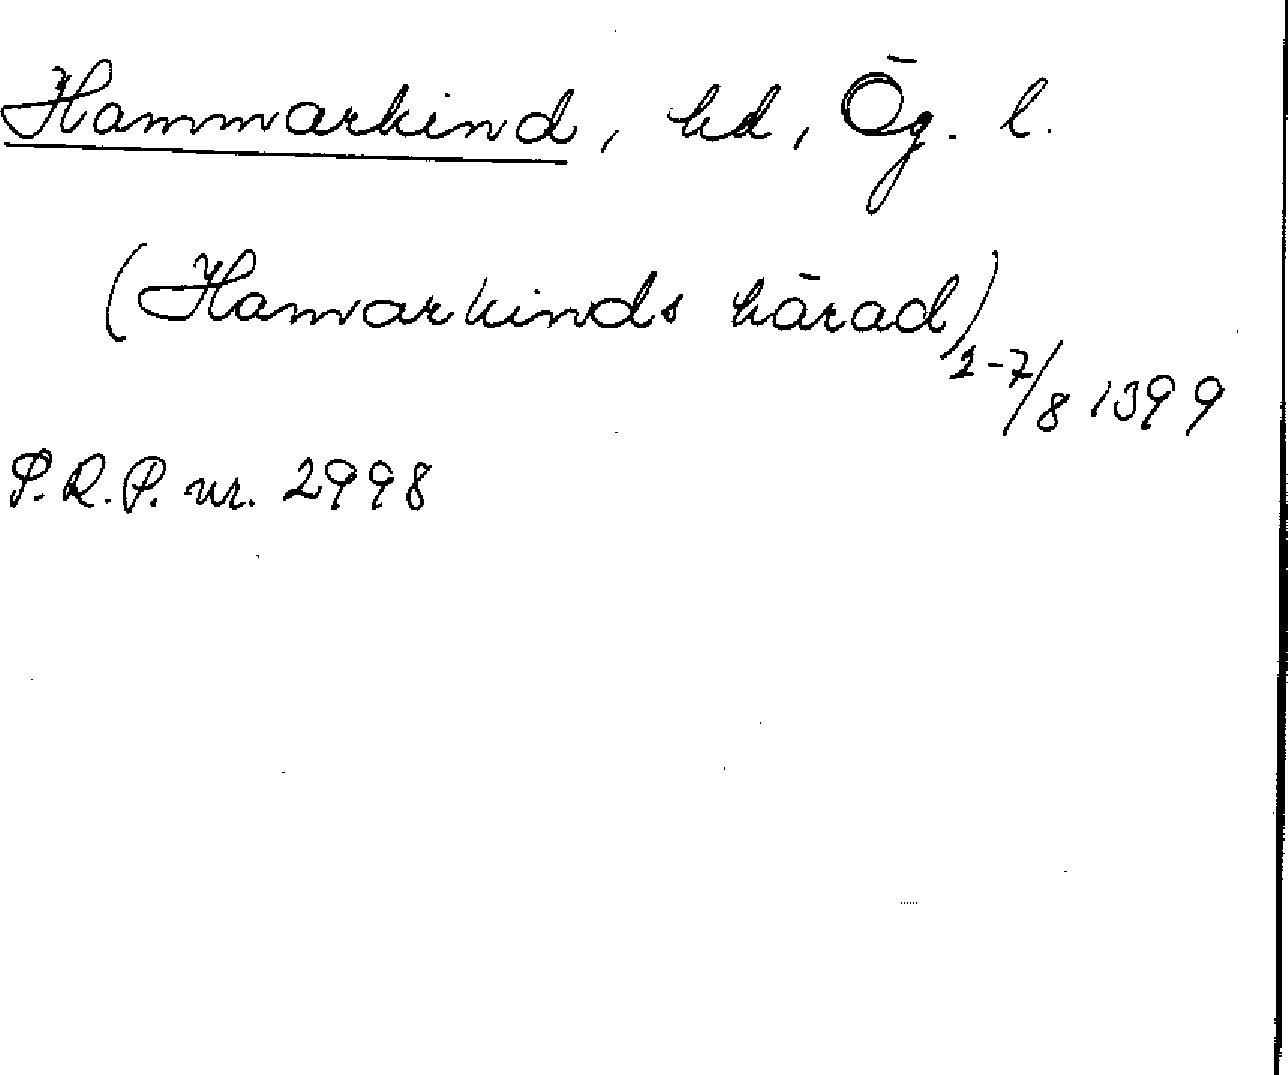 Hammarkind, hd, Ög. l.
(Hamarkinds härad)
2-7/8 1399
P.R.P. nr. 2998